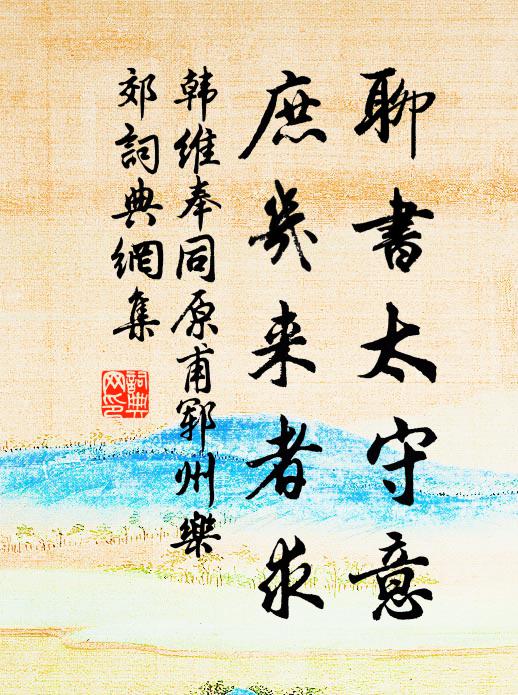 聊書太守意
庶幾来者求
韩維奉同原甫鄆州樂
郊詞典網集
詞典網印